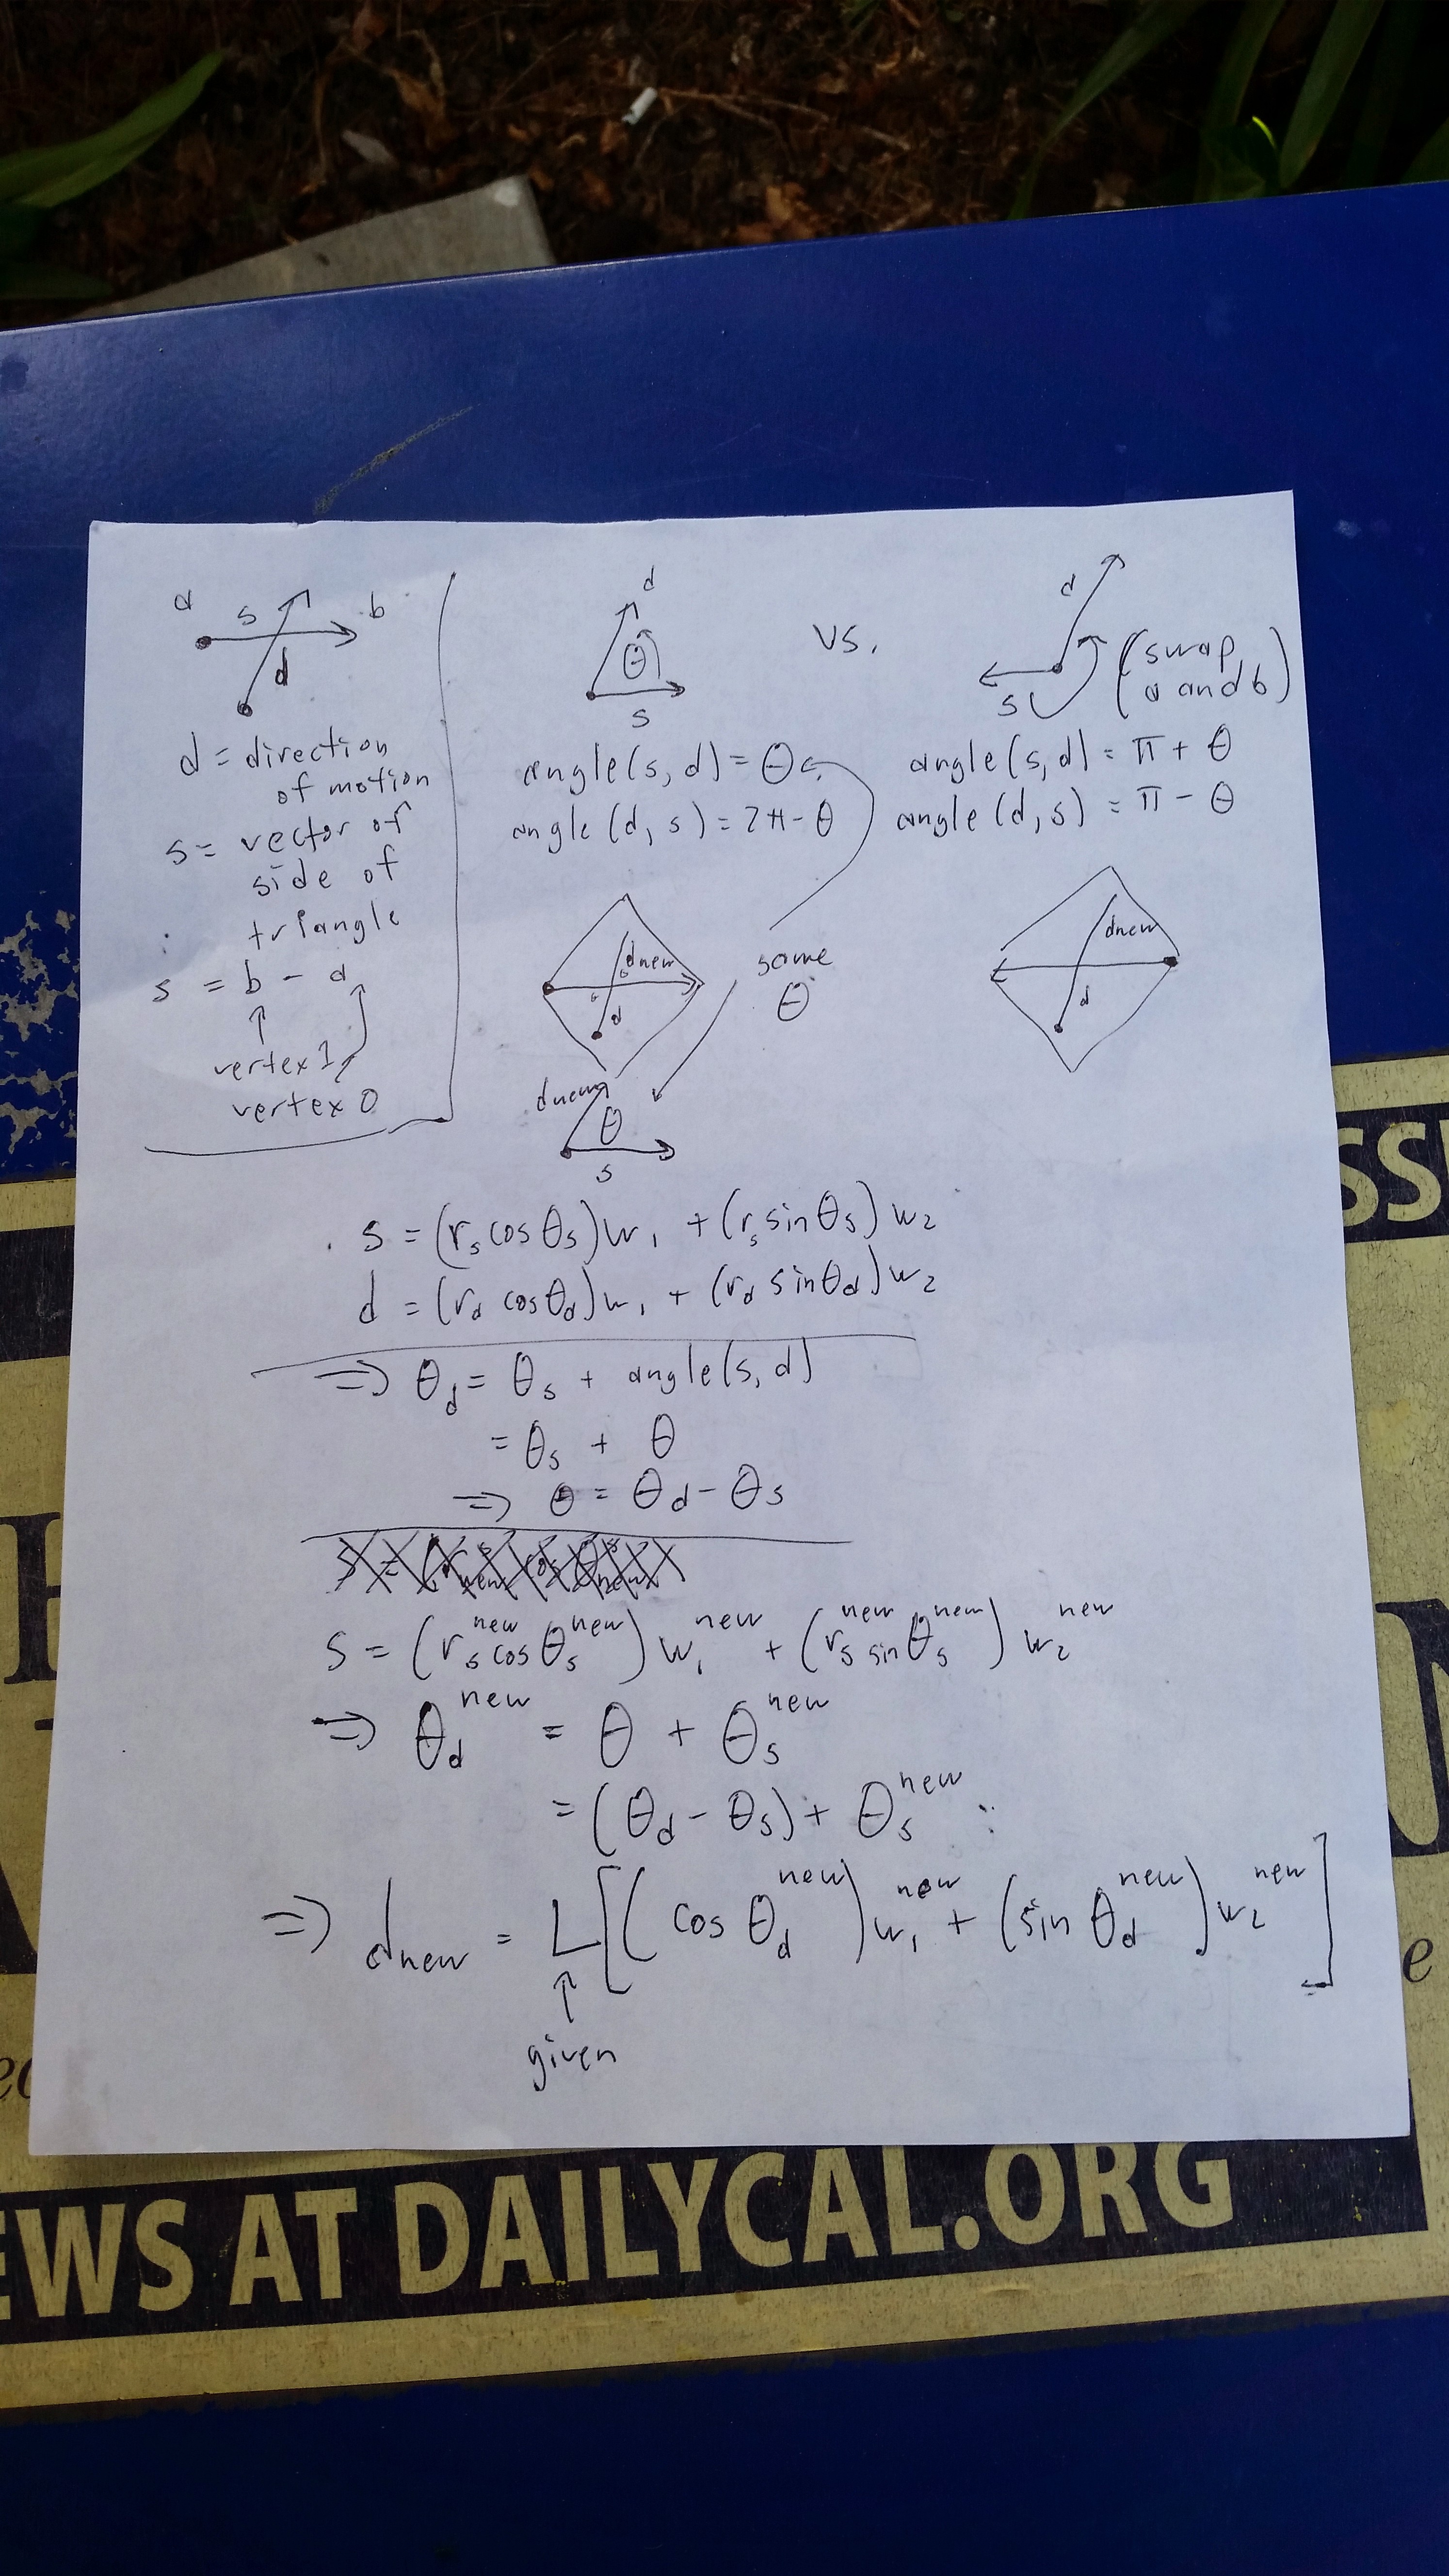 a s b
d
d = direction
of motion
s = vector of
side of
triangle
s = b - a
vertex 1
vertex 0
d
θ
s
vs.
d
s
(swap
a and b)
angle(s, d) = θ
angle(d, s) = 2π - θ
angle(s, d) = π + θ
angle(d, s) = π - θ
dnew
d
same
θ
dnew
d
dnew
θ
s
s = (r_s cos θ_s) w_1 + (r_s sin θ_s) w_2
d = (r_d cos θ_d) w_1 + (r_d sin θ_d) w_2
⇒ θ_d = θ_s + angle(s, d)
= θ_s + θ
⇒ θ = θ_d - θ_s
s = (r_s^new cos θ_s^new) w_1^new + (r_s^new sin θ_s^new) w_2^new
⇒ θ_d^new = θ + θ_s^new
= (θ_d - θ_s) + θ_s^new
⇒ d_new = L[(cos θ_d^new) w_1^new + (sin θ_d^new) w_2^new]
↑
given
EWS AT DAILYCAL.ORG